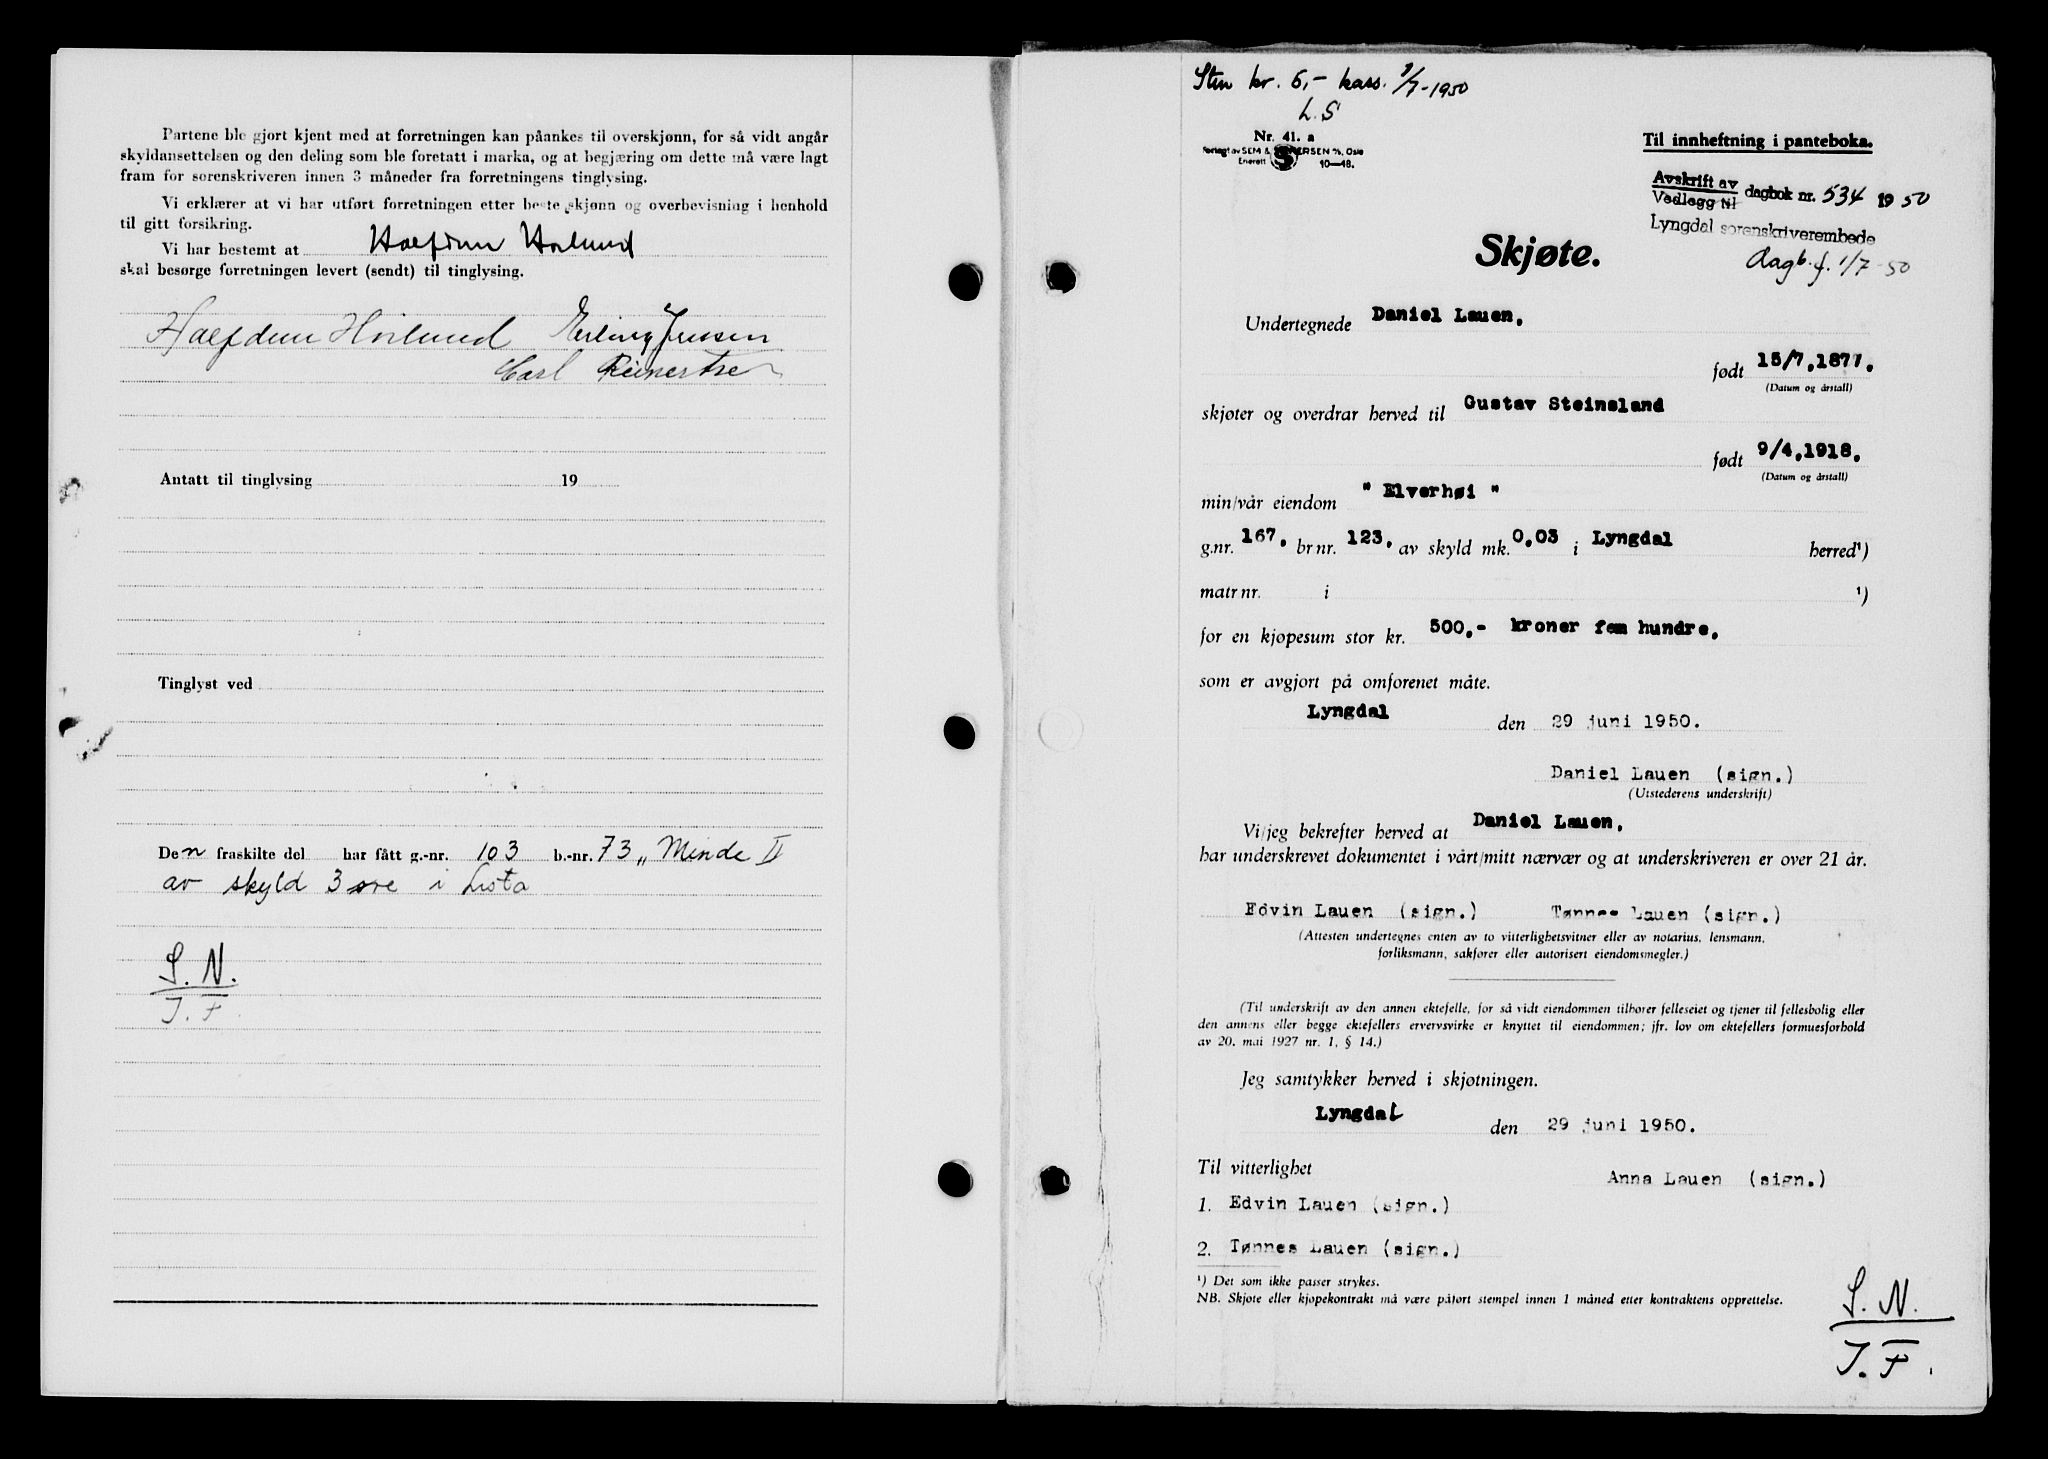 Partene ble gjort kjent med at forretningen kan påankes til overskjønn, for så vidt angår
skyldansettelsen og den deling som ble foretatt i marka, og at begjæring om dette må være lagt
fram for sorenskriveren innen 3 måneder fra forretningens tinglysing.
Vi erklærer at vi har utført forretningen etter beste skjønn og overbevisning i henhold
til gitt forsikring.
Vi har bestemt at Halfdan
skal besørge forretningen levert (sendt) til tinglysing.
Halfdan Erling Jensen
Carl Reinertsen
Antatt til tinglysing 19
Tinglyst ved
Den fraskilte del har fått g.-nr. 103 b.-nr. 73 „ Minde II
av skyld 3 øre i Lista
S. N.
J. F.
Stm kr. 5,- kass. 1/7-1950
L.S
Nr. 41. a
Enerett 10—48.
Til innheftning i panteboka.
Avskrift av
Vedlegg til dagbok nr. 534 1950
Lyngdal sorenskriverembede
dagb.f. 1/7-50
Skjøte.
Undertegnede Daniel Lauen,
født 15/7.1877.
(Datum og årstall)
skjøter og overdrar herved til Gustav Steinsland
født 9/4.1918.
(Datum og årstall)
min/vår eiendom " Elverhøi "
g.nr. 167. br nr. 123, av skyld mk. 0,03 i Lyngdal herred¹)
matr nr. i ¹)
for en kjøpesum stor kr. 500,- kroner fem hundre.
som er avgjort på omforenet måte.
Lyngdal den 29 juni 1950.
Daniel Lauen (sign.)
(Utstederens underskrift)
Vi/jeg bekrefter herved at Daniel Lauen,
har underskrevet dokumentet i vårt/mitt nærvær og at underskriveren er over 21 år.
Edvin Lauen (sign.) Tønnes Lauen (sign.)
(Attesten undertegnes enten av to vitterlighetsvitner eller av notarius, lensmann,
forliksmann, sakfører eller autorisert eiendomsmegler.)
(Til underskrift av den annen ektefelle, for så vidt eiendommen tilhører felleseiet og tjener til fellesbolig eller
den annens eller begge ektefellers ervervsvirke er knyttet til eiendommen; jfr. lov om ektefellers formuesforhold
av 20. mai 1927 nr. 1, § 14.)
Jeg samtykker herved i skjøtningen.
Lyngdal den 29 juni 1950.
Til vitterlighet
Anna Lauen (sign.)
1. Edvin Lauen (sign.)
2. Tønnes Lauen (sign.)
¹) Det som ikke passer strykes.
NB. Skjøte eller kjøpekontrakt må være påført stempel innen 1 måned etter kontraktens opprettelse.
S. N.
J. F.